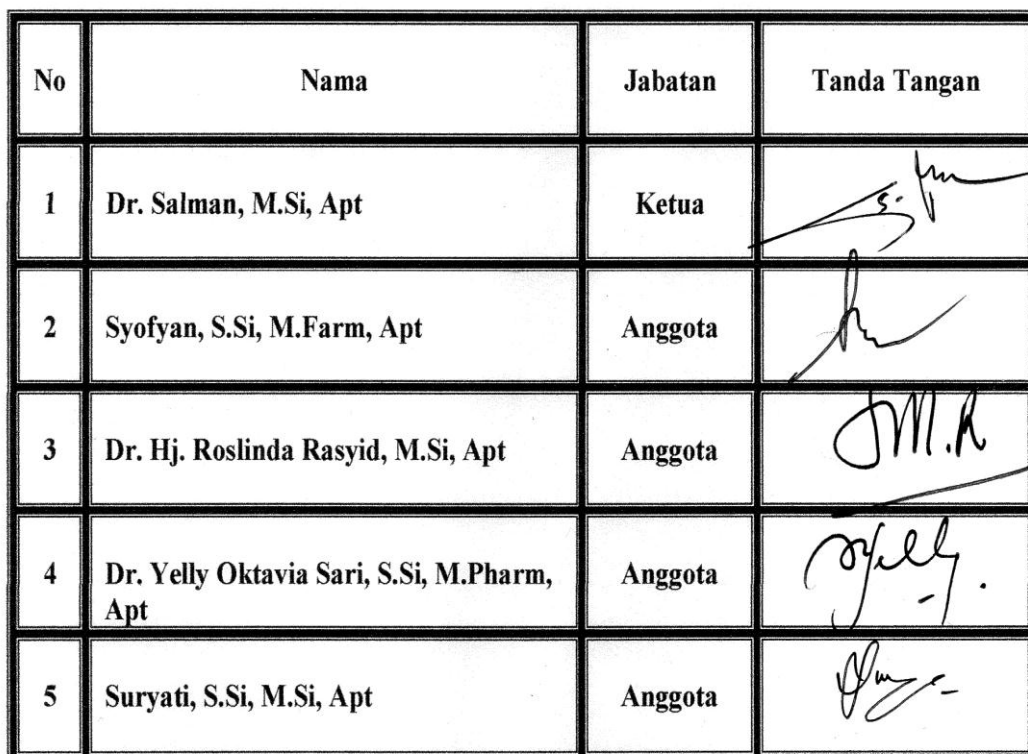 No Nama Jabatan Tanda Tangan
1 Dr. Salman, M.Si, Apt Ketua
2 Syofyan, S.Si, M.Farm, Apt Anggota
3 Dr. Hj. Roslinda Rasyid, M.Si, Apt Anggota
4 Dr. Yelly Oktavia Sari, S.Si, M.Pharm, Anggota
Apt
5 Suryati, S.Si, M.Si, Apt Anggota